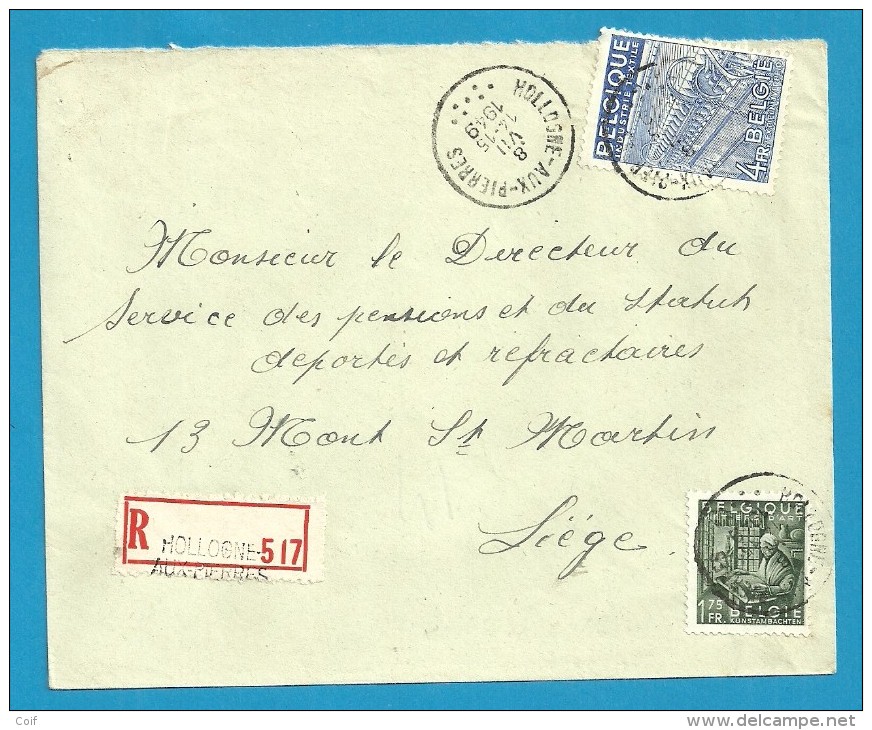 HOLLOGNE-AUX-PIERRES
8
VII
14-15
1949
BELGIQUE
INDUSTRIE TEXTILE
4 FR
BELGIE
Monsieur le Derecteur du
Service des pensions et du Statut
deportés et refractaires
13 Mont St Martin
Liége.
R
HOLLOGNE-
AUX-PIERRES
517
BELGIQUE
D'ART
1 75 FR.
BELGIE
KUNSTAMBACHTEN
Coif
delcampe.net